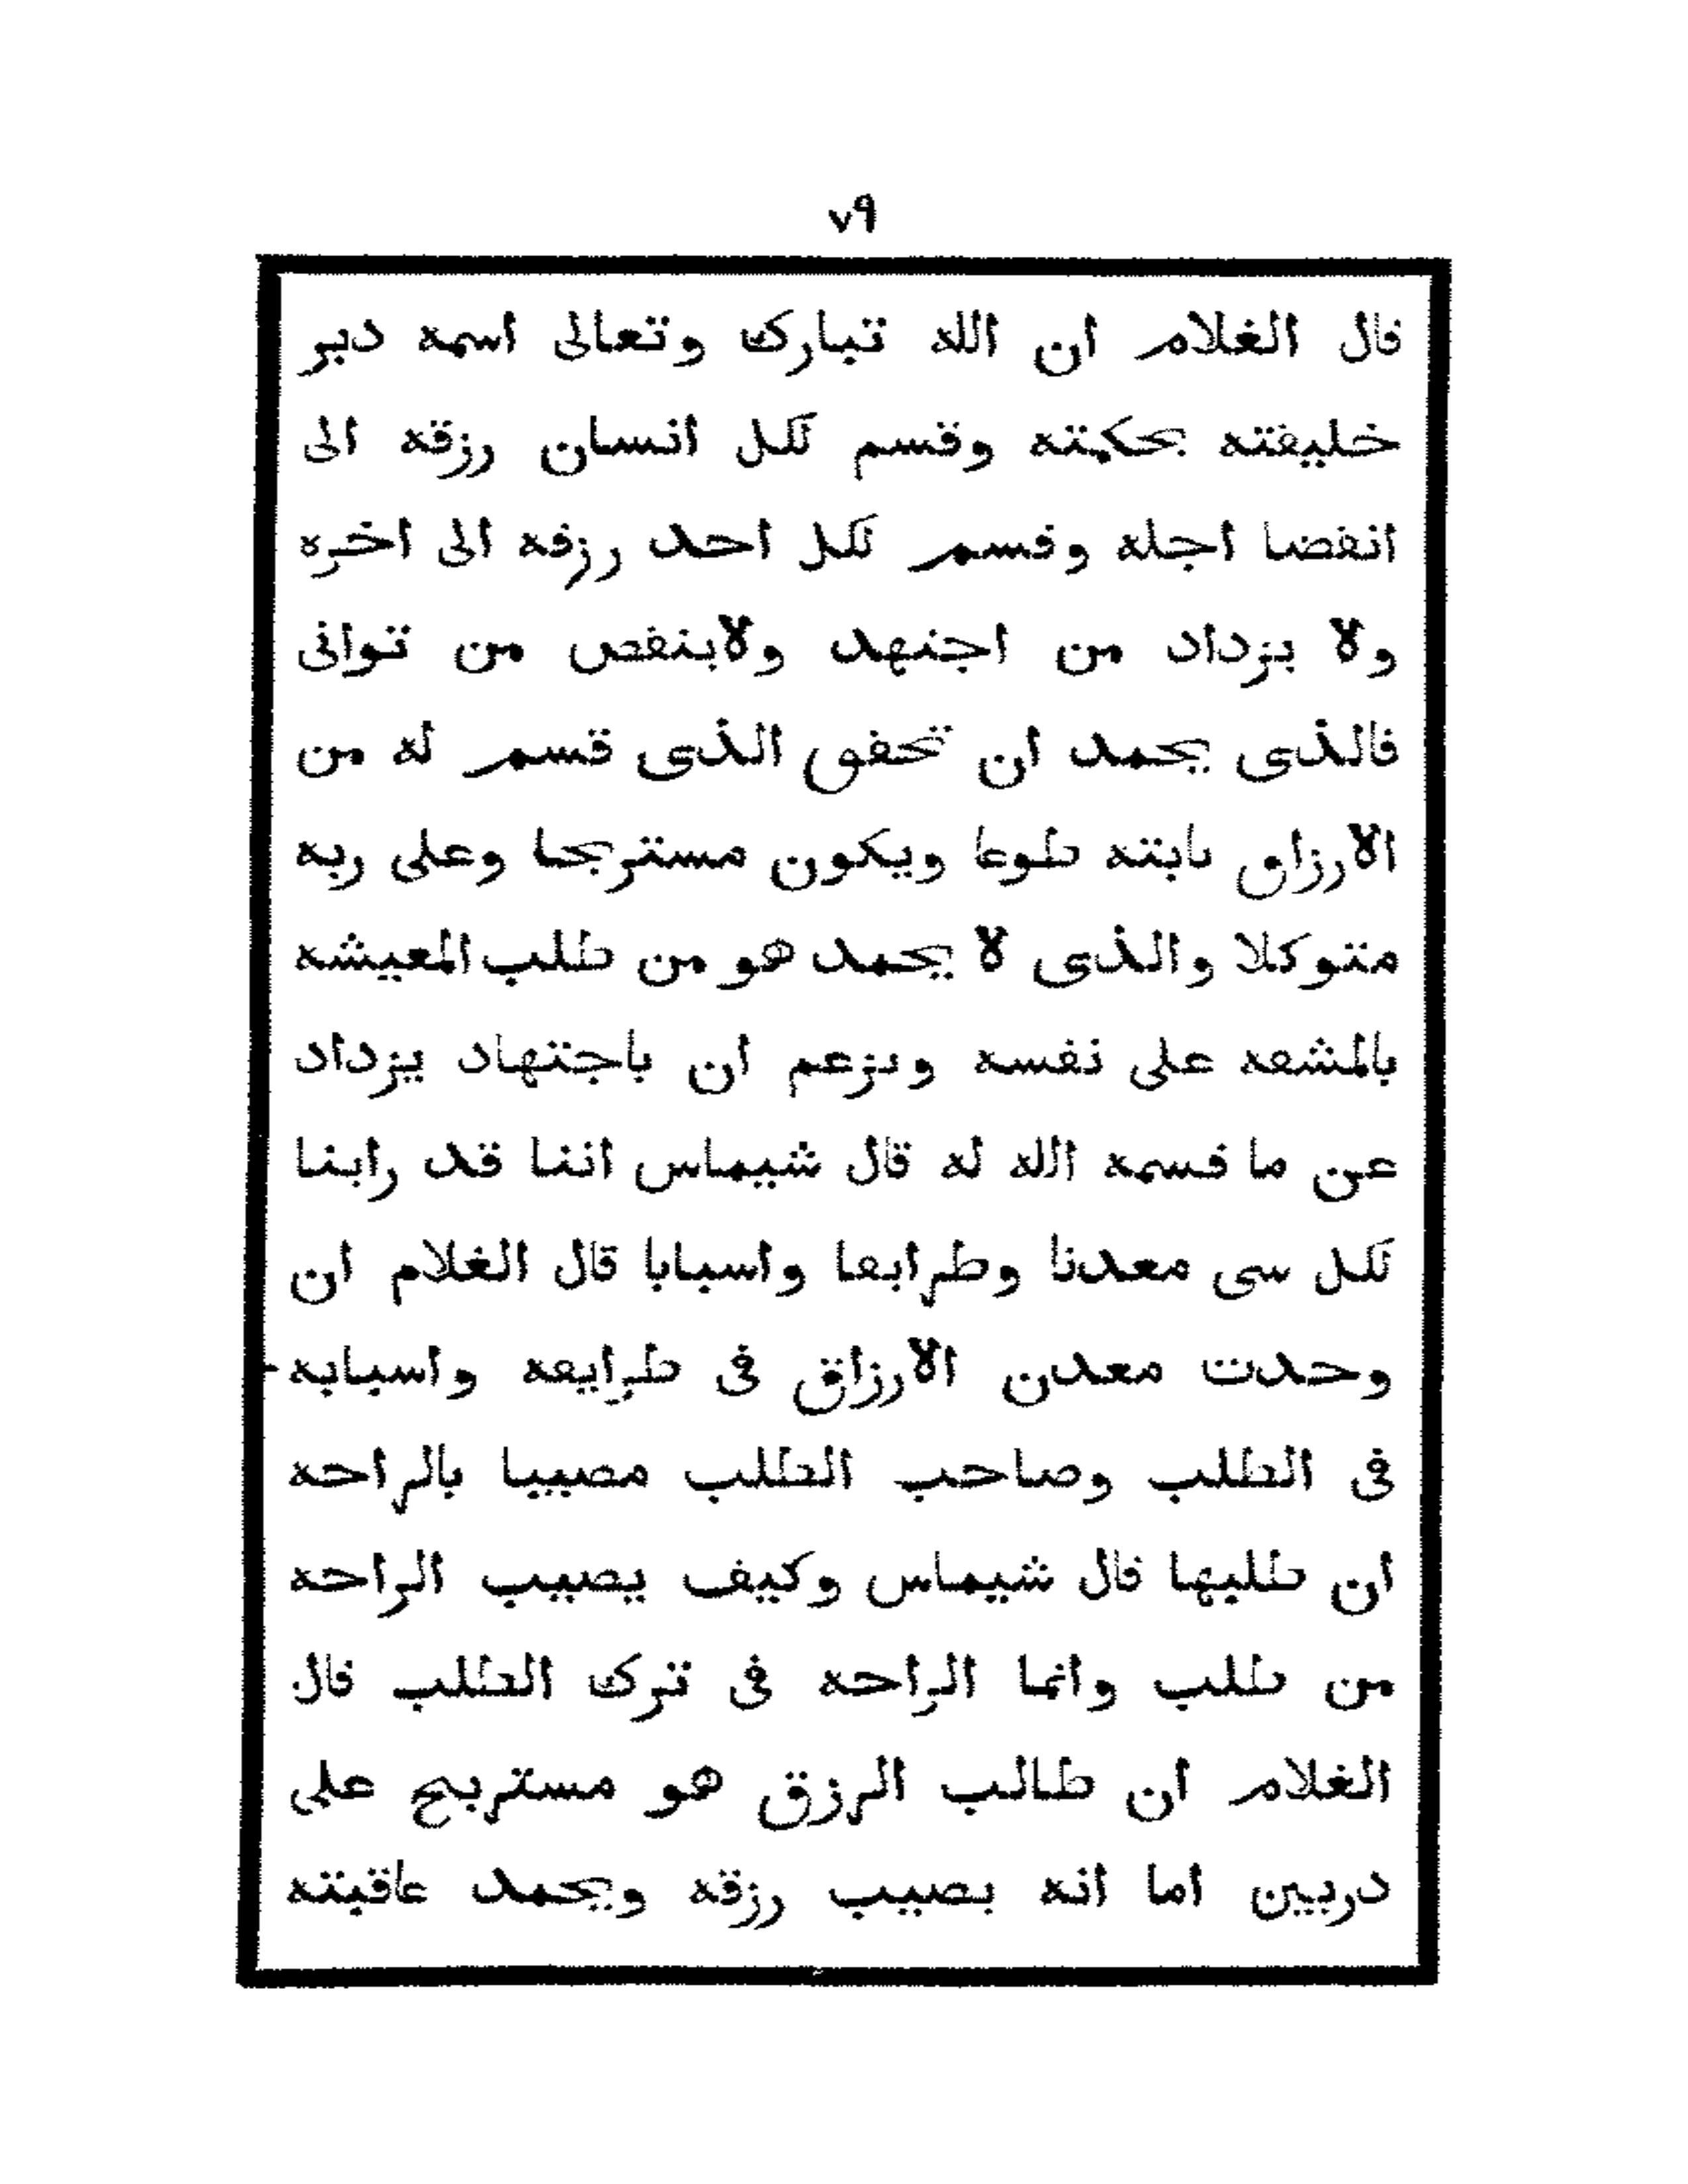 ٧٩
قال الغلام ان الله تبارك وتعالى اسمه دبر
خليقته بحكمته وقسم لكل انسان رزقه الى
انقضا اجله وقسم لكل احد رزقه الى اخره
ولا يزداد من اجتهد ولاينقص من توانى
فالذى يحمد ان تحقق الذى قسم له من
الارزاق تابته طوعا ويكون مستريحا وعلى ربه
متوكلا والذى لا يحمد هو من طلب المعيشه
بالمشقه على نفسه ويزعم ان باجتهاد يزداد
عن ما قسمه الله له قال شيماس اننا قد راينا
لكل سى معدنا وطرايقا واسبابا قال الغلام ان
وحدت معدن الارزاق فى طرايقه واسبابه
فى الطلب وصاحب الطلب مصيبا بالراحه
ان طلبها قال شيماس وكيف يصيب الراحه
من طلب وانما الراحه فى ترك الطلب قال
الغلام ان طالب الرزق هو مستريح على
دربين اما انه يصيب رزقه ويحمد عاقبته